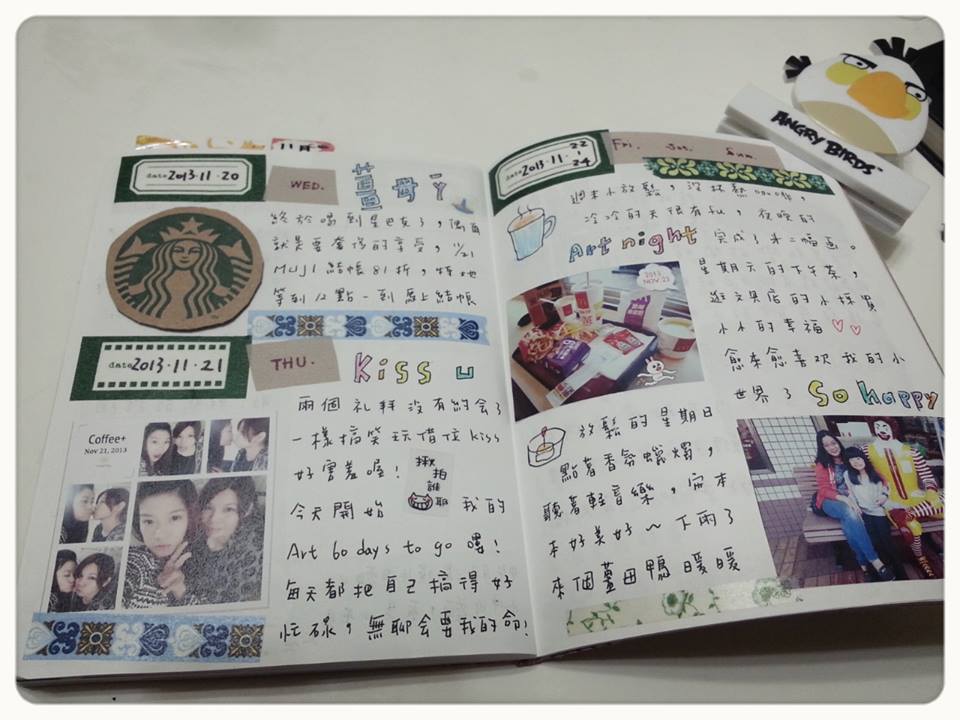 date 2013.11.20
WED.
薑母ㄚ
終於喝到星巴克了，偶爾
就是要奢侈的享受，11/21
MUJI 結帳81折，特地
等到12點一到馬上結帳
date 2013.11.21
THU.
Kiss u
兩個礼拜沒有約會了
一樣搞笑玩借位kiss
好害羞喔！
揪拍誰耶
今天開始 我的
Art 60 days to go 嘿！
每天都把自己搞得好
忙碌，無聊會要我的命！
Coffee+
Nov 21, 2013
date 2013.11.22
24
Fri. Sat. Sun.
週末小放鬆，
冷冷的天很有fu，夜晚的
Art night
完成了第二幅畫。
星期天的下午茶，
逛文具店的小採買
小小的幸福
愈來愈喜欢我的小
世界了 So happy
2013
NOV.23
放鬆的星期日
點著香氛蠟燭，
聽著輕音樂，
好美好~下雨了
來個薑母鴨暖暖
ANGRY BIRDS